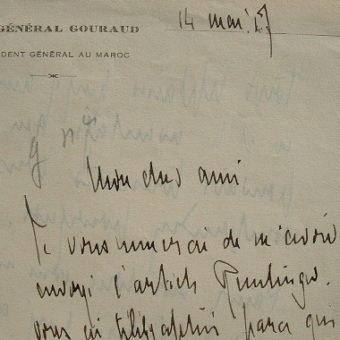 GÉNÉRAL GOURAUD
14 mai 17
DENT GÉNÉRAL AU MAROC
Mon cher ami
Je vous remercie de m'avoir
envoyé l'article
vous ai télégraphié parce que